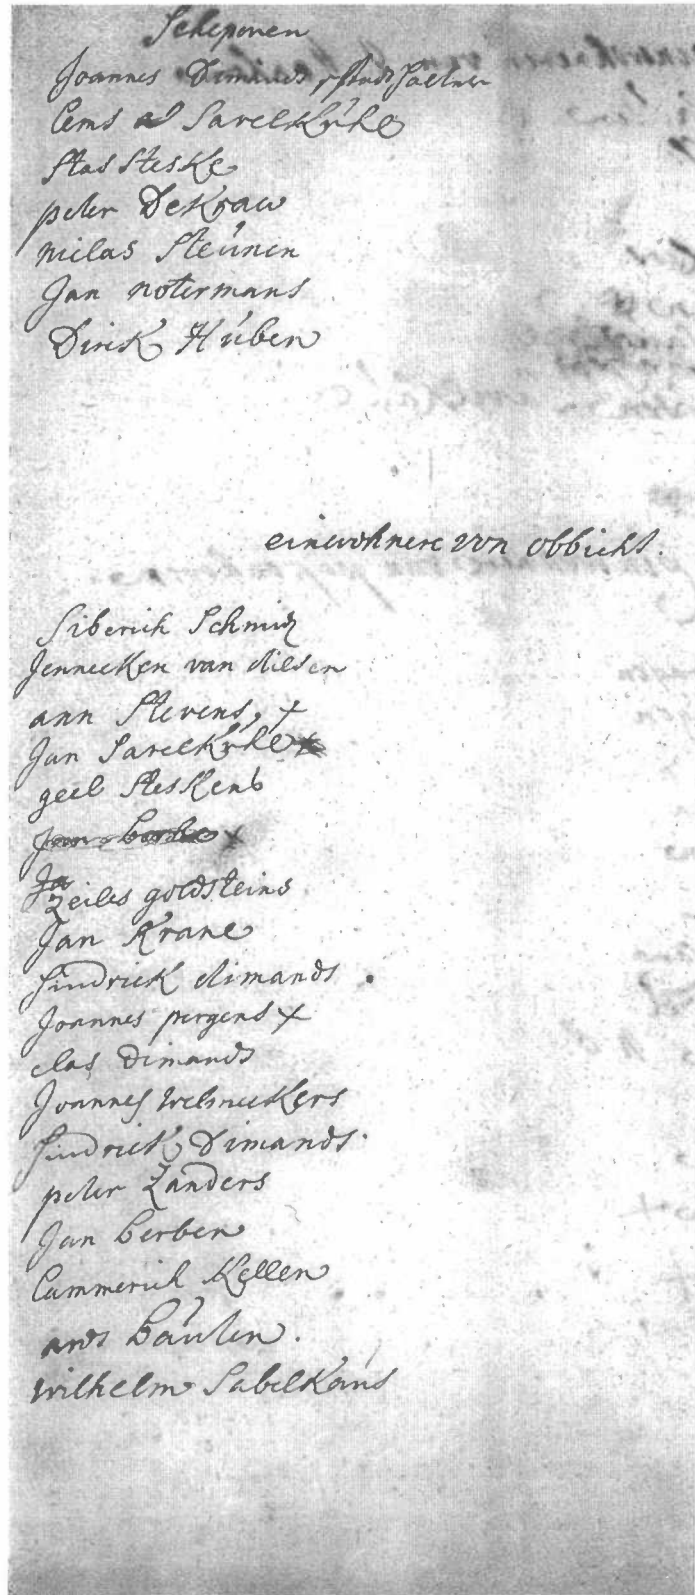 Schepenen
Joannes Dimands,
Lems Sarelkÿhl
Stas Steske
peter DeKraw
niclas Steúnen
Jan notermans
Dirck Húben
einwohnere von obbicht.
Siberich Schmitz
Jennecken van dilsen
ann Stevens, +
Jan Sarelkÿhl
geel Steskens
Jan +
Ja
Zeiles goldsteins
Jan Krane
Hindrick dimands .
Joannes pergens +
clas Dimands
Joannes
Hindrick Dimands.
peter Zanders
Jan Cerben
Lammerich Kellen
Baúlen.
wilhelm Sabelkaús